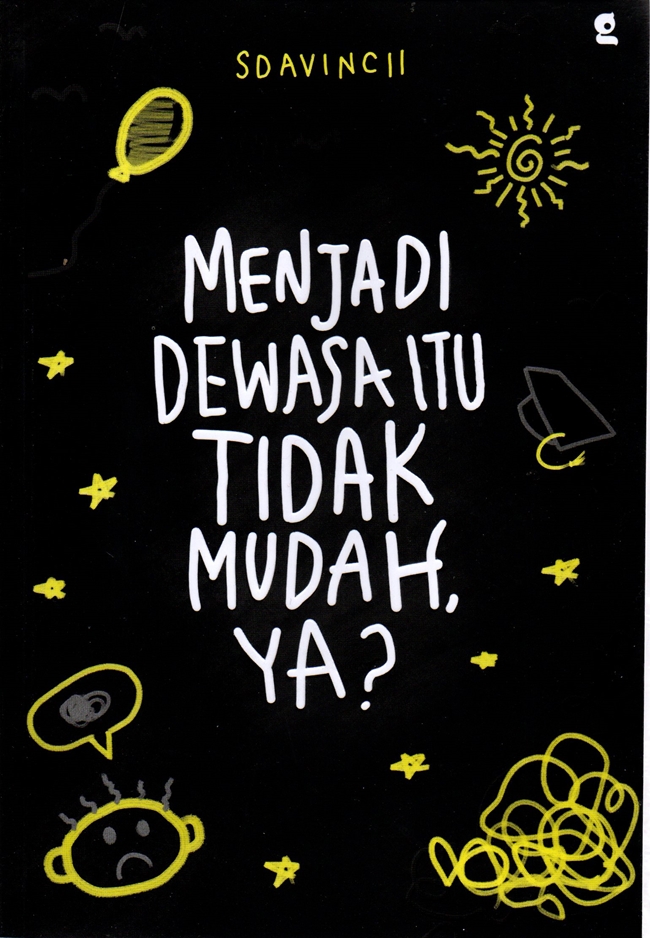 g
SDAVINCII
MENJADI
DEWASA ITU
TIDAK
MUDAH,
YA?